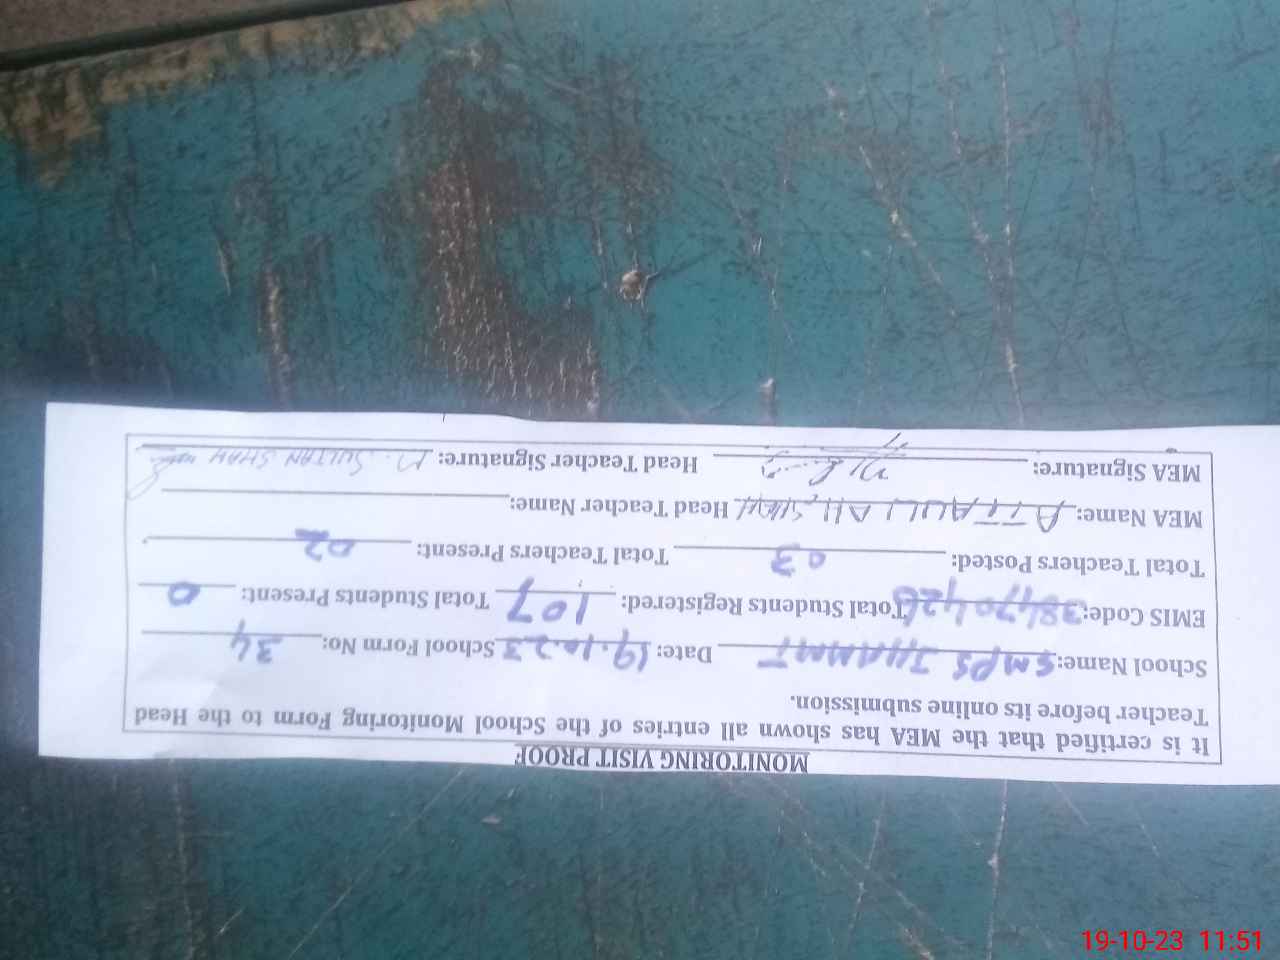 MONITORING VISIT PROOF
It is certified that the MEA has shown all entries of the School Monitoring Form to the Head
Teacher before its online submission.
School Name: GMPS JHAMMT Date: 19.10.23 School Form No: 34
EMIS Code: 38470426 Total Students Registered: 107 Total Students Present: 0
Total Teachers Posted: 03 Total Teachers Present: 02
MEA Name: ATTAULLAH SHAH Head Teacher Name:
MEA Signature: Head Teacher Signature: M. SULTAN SHAH
19-10-23 11:51